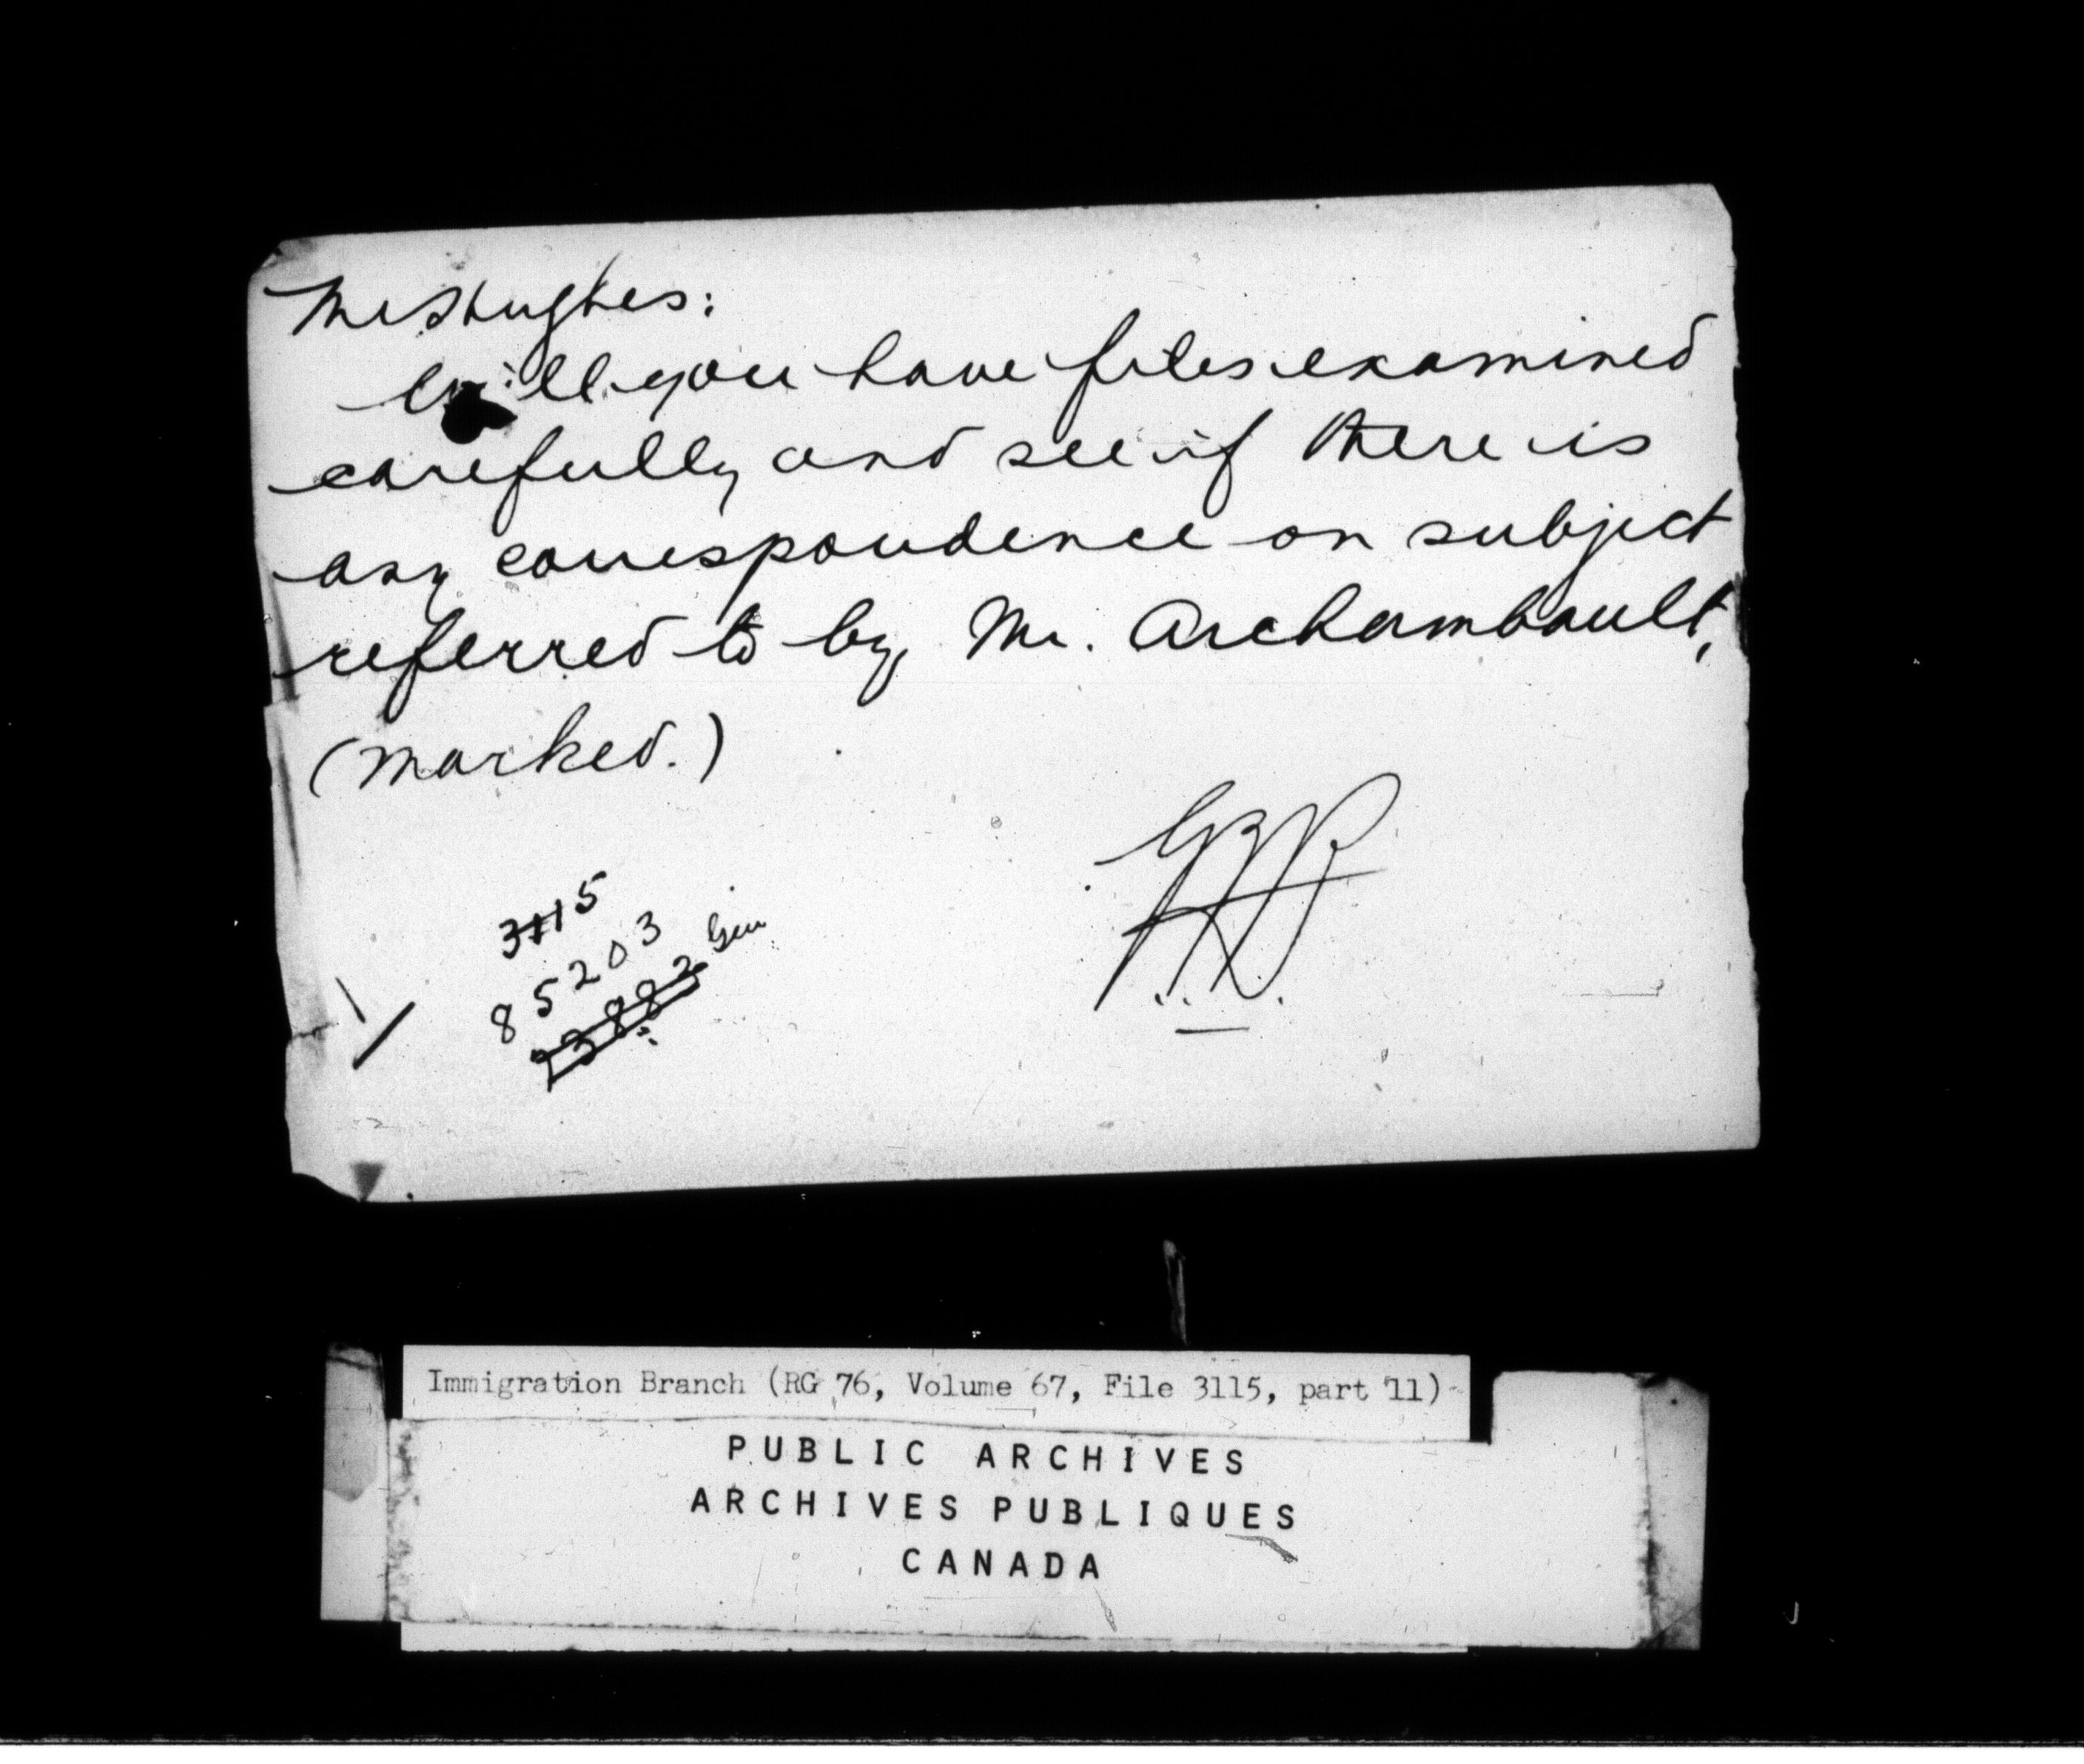 Mr Hughes:
Will you have files examined
carefully and see if there is
any correspondence on subject
referred to by Mr. Archambault,
(marked.)
3115
85203
Immigration Branch (RG 76, Volume 67, File 3115, part 11)
PUBLIC ARCHIVES
ARCHIVES PUBLIQUES
CANADA